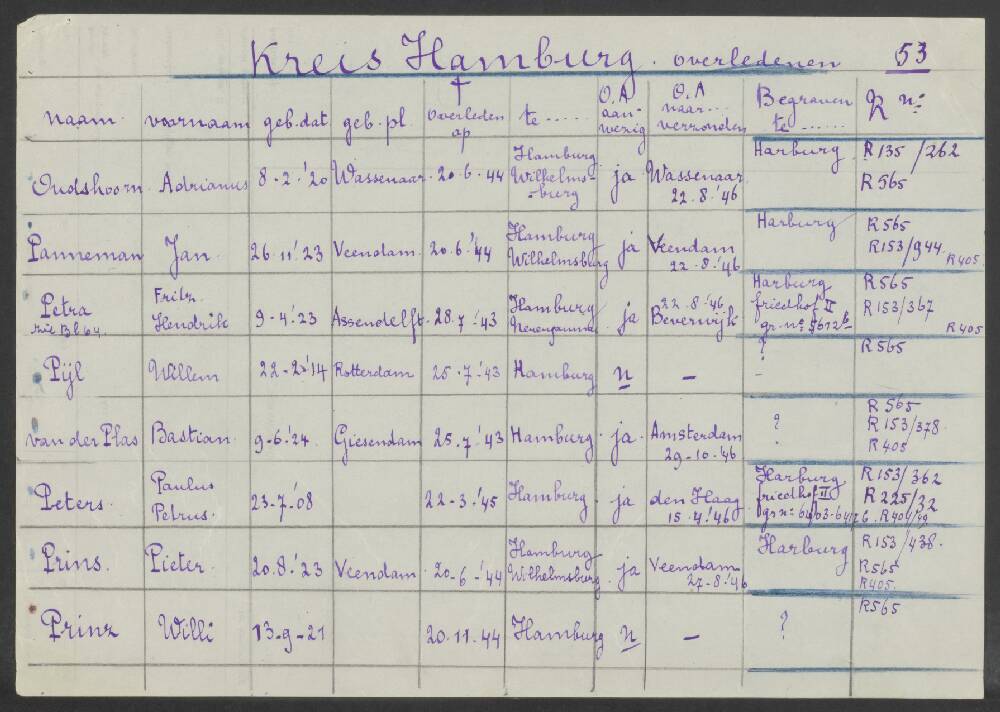 Kreis Hamburg. overledenen 53
naam. voornaam geb.dat geb.pl. † overleden op te ...... O.A aanwezig O.A naar... verzonden Begraven te ...... R nº
Oudshoorn. Adrianus 8-2.'20 Wassenaar. 20.6.'44 Hamburg Wilhelms=burg ja Wassenaar 22.8.'46 Harburg R135/262
R565
Panneman Jan. 26.11.'23 Veendam. 20.6.'44 Hamburg Wilhelmsburg ja Veendam 22.8.'46 Harburg R565
R153/944. R405.
Petra zie Bl 64. Fritz Hendrik 9-4.'23 Assendelft. 28.7.'43 Hamburg ja 22.8.'46 Beverwijk Harburg friedhof II gr.nº R565
R153/367
R405
Pijl Willem 22-2.'14 Rotterdam 25.7.'43 Hamburg n — ? – R565
van der Plas Bastian. 9-6.'24. Giesendam 25.7.'43 Hamburg. ja. Amsterdam 29-10.'46 ? R565
R153/378.
R405
Peters. Paulus Petrus. 23-7.'08 22-3.'45 Hamburg. ja den Haag 15.4.'46 Harburg friedhof II gr nº R153/362
R225/32
Prins. Pieter. 20.8.'23 Veendam 20-6-'44 Hamburg Wilhelmsburg. ja Veendam 27-8.'46 Harburg R153/438.
R565
R405.
Prinz Willi 13-9-21 20.11.44 Hamburg n — ? R565